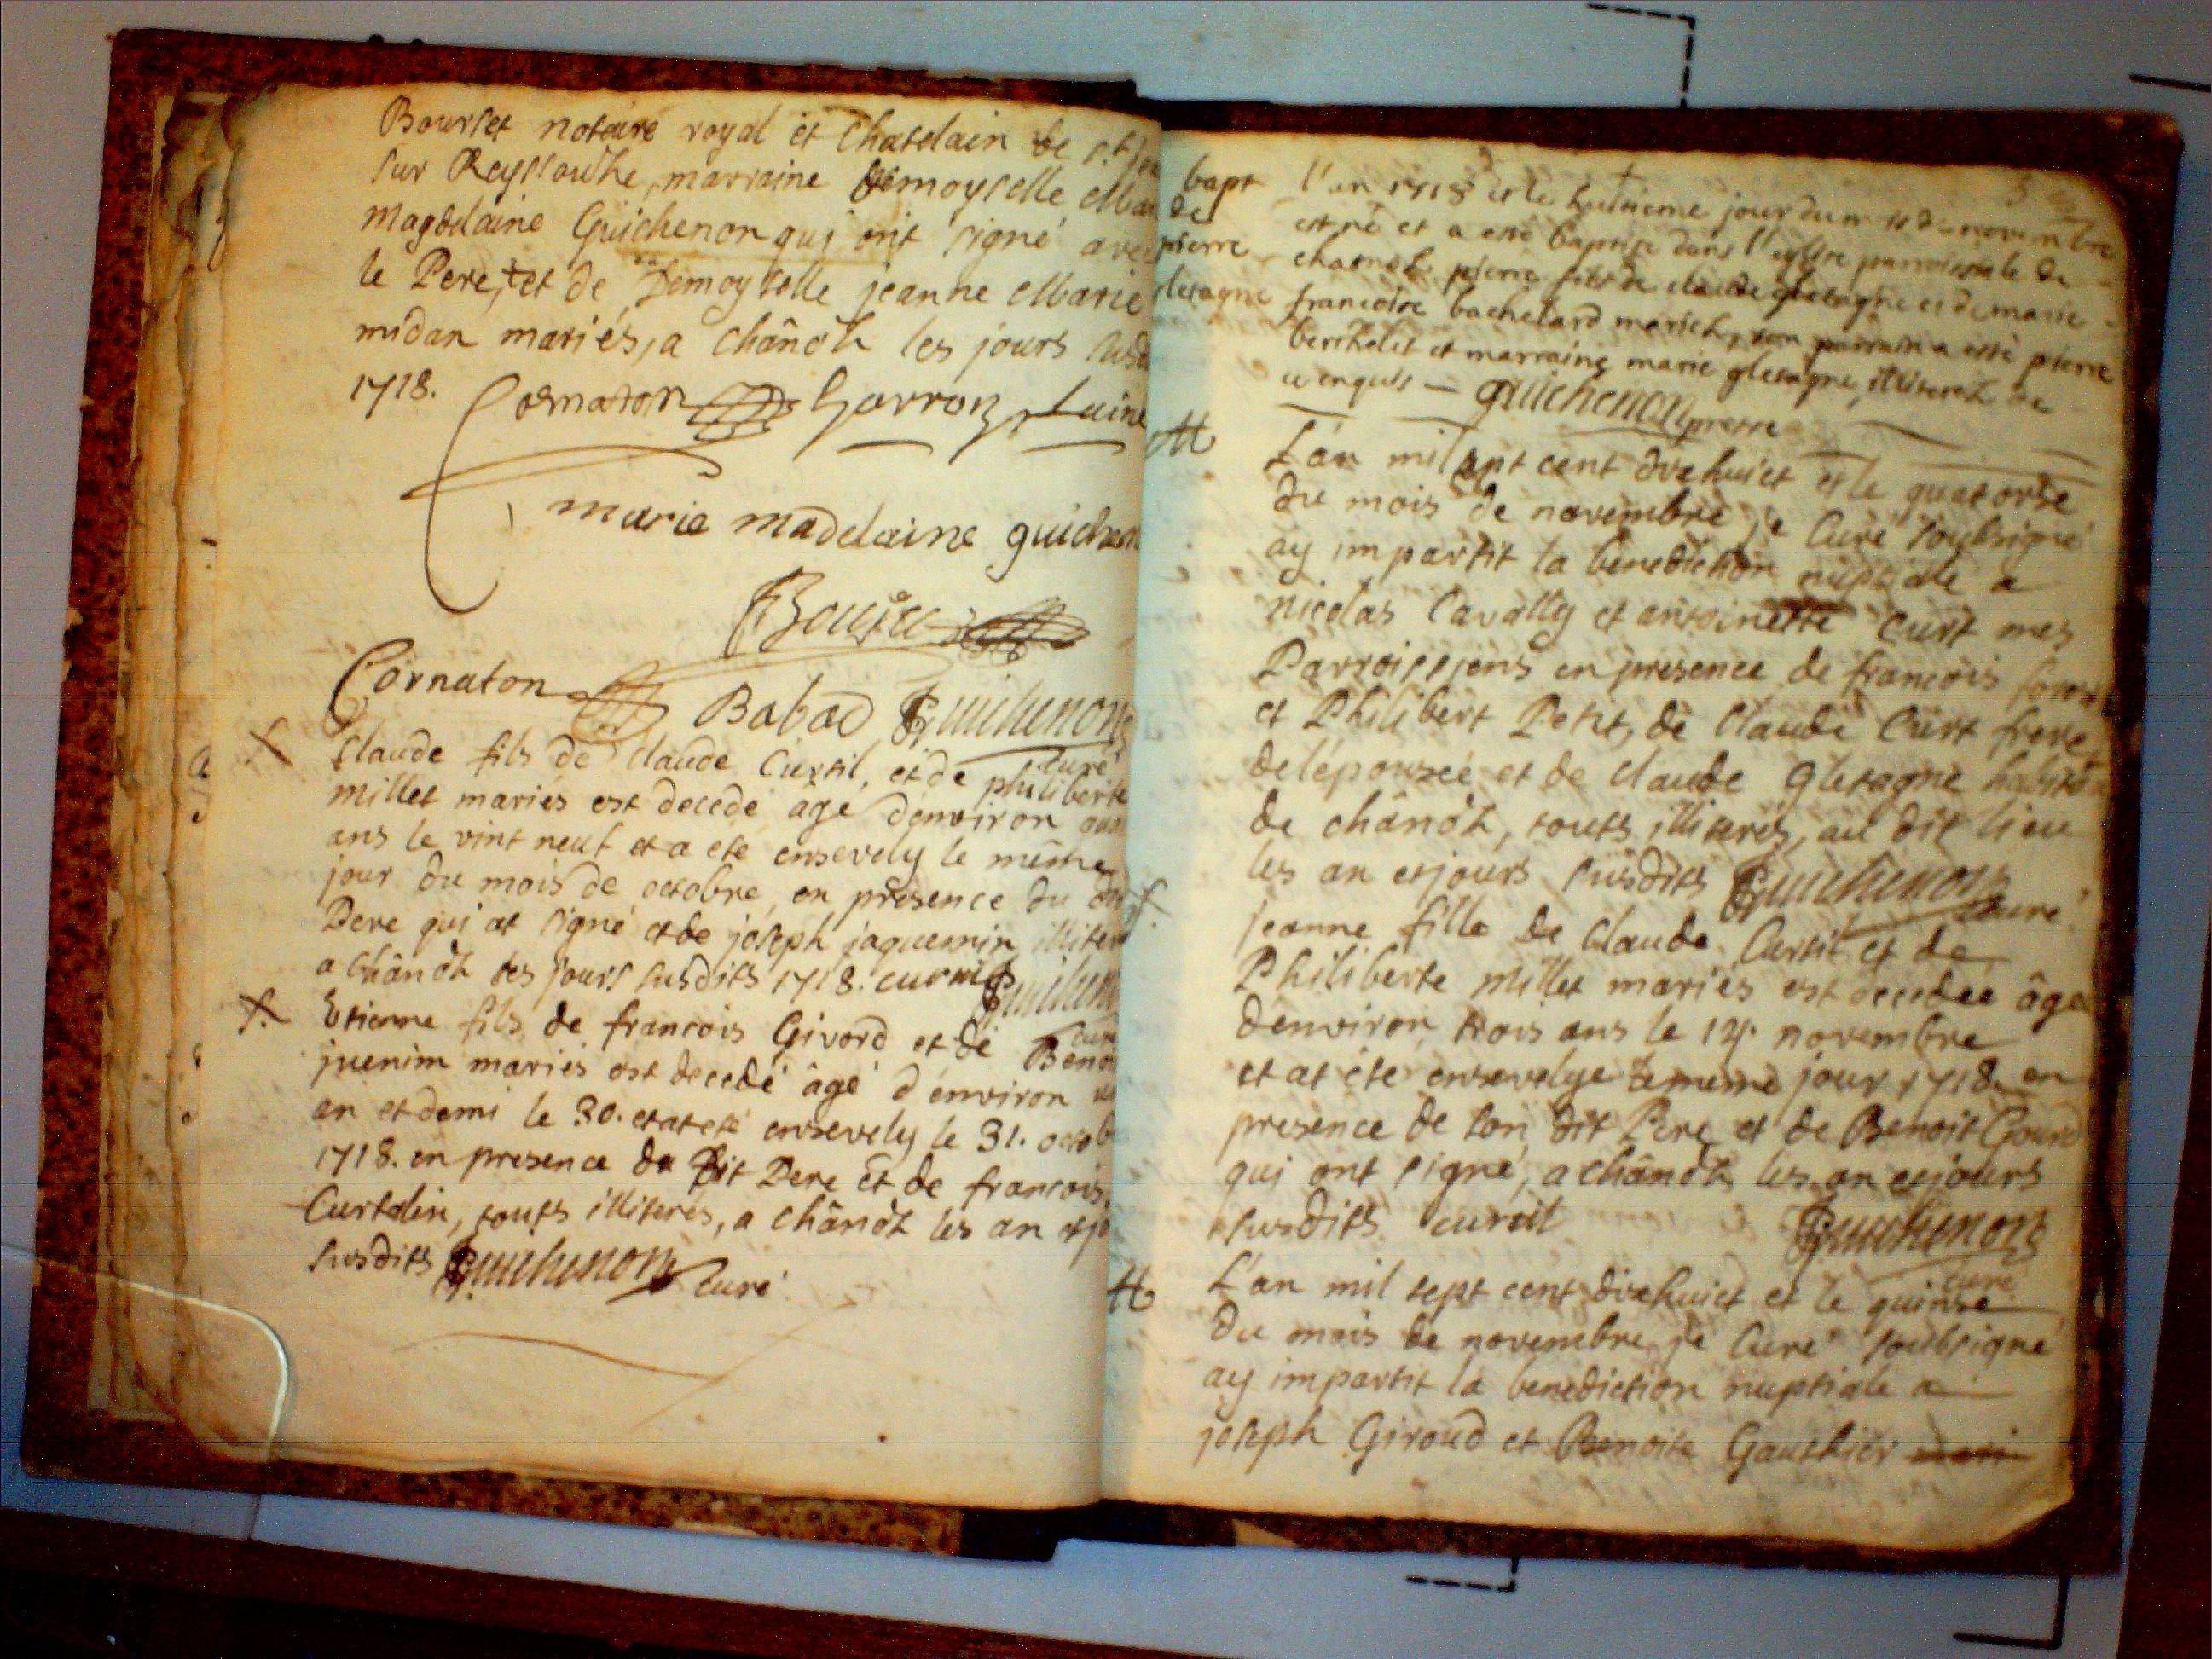 Bourset notaire royal et Chatelain de s.t
sur Reyssouthe, marraine Demoyselle
Magdelaine Guichenon qui ont signé avec
le Pere, et de Demoyselle jeanne Marie
midan mariés, a Chânoh les jours susd
1718.
Cornaton
marie madelaine guichenon
Cornaton Babad Guichenon
curé
Claude fils de Claude Curtil, et de philiberte
millet mariés est decedé âgé denviron
ans le vint neuf et a ete ensevely le même
jour du mois de octobre, en présence du dit
Pere qui at signé et de joseph jaquemin illiteré
a Chânoh les jours susdits 1718. curtil Guichenon
curé
Etienne fils de francois Givord et de Benoi
juenim mariés est decedé âgé d'environ un
an et demi le 30. et at eté ensevely le 31. octob
1718. en presence du Dit Pere et de francois
Curtelin, touts illiterés, a Chânoh les an et jo
susdits Guichenon curé
bapt
de
pierre
gletagne
l'an 1718 et le huitieme jour du mois de novembre
est né et a esté baptisé dans l'eglise parroissiale de
chanoh pierre fils de claude gletagne et de marie
francoise bachelard mariés, son parrain a esté pierre
berthelet et marraine marie gletagne, illiterés de
ce enquis — guichenon prestre
M
L'an mil sept cent dixhuict et le quatorse
du mois de novembre je Curé soubsigné
ay impartit la benediction nuptiale a
nicolas Cavally et antoinette Curt mes
Parroissiens en presence de francois
et Philibert Petit, de Claude Curt frere
de l'épousée et de claude gletagne habita
de chânoh, touts illiterés, au dit lieu
les an et jours susdits Guichenon
curé
jeanne fille de Claude Curtil et de
Philiberte Millet mariés est decedée âgé
d'environ trois ans le 14. novembre
et at ete ensevelye le meme jour 1718. en
presence de son dit Pere et de Benoit Gourd
qui ont signé, a chânoh les an et jours
susdits curtil Guichenon
curé
M
L'an mil sept cent dixhuict et le quinse
Du mois de novembre je Curé soubsigné
ay impartit la benediction nuptiale a
joseph Giroud et Benoite Gauthier